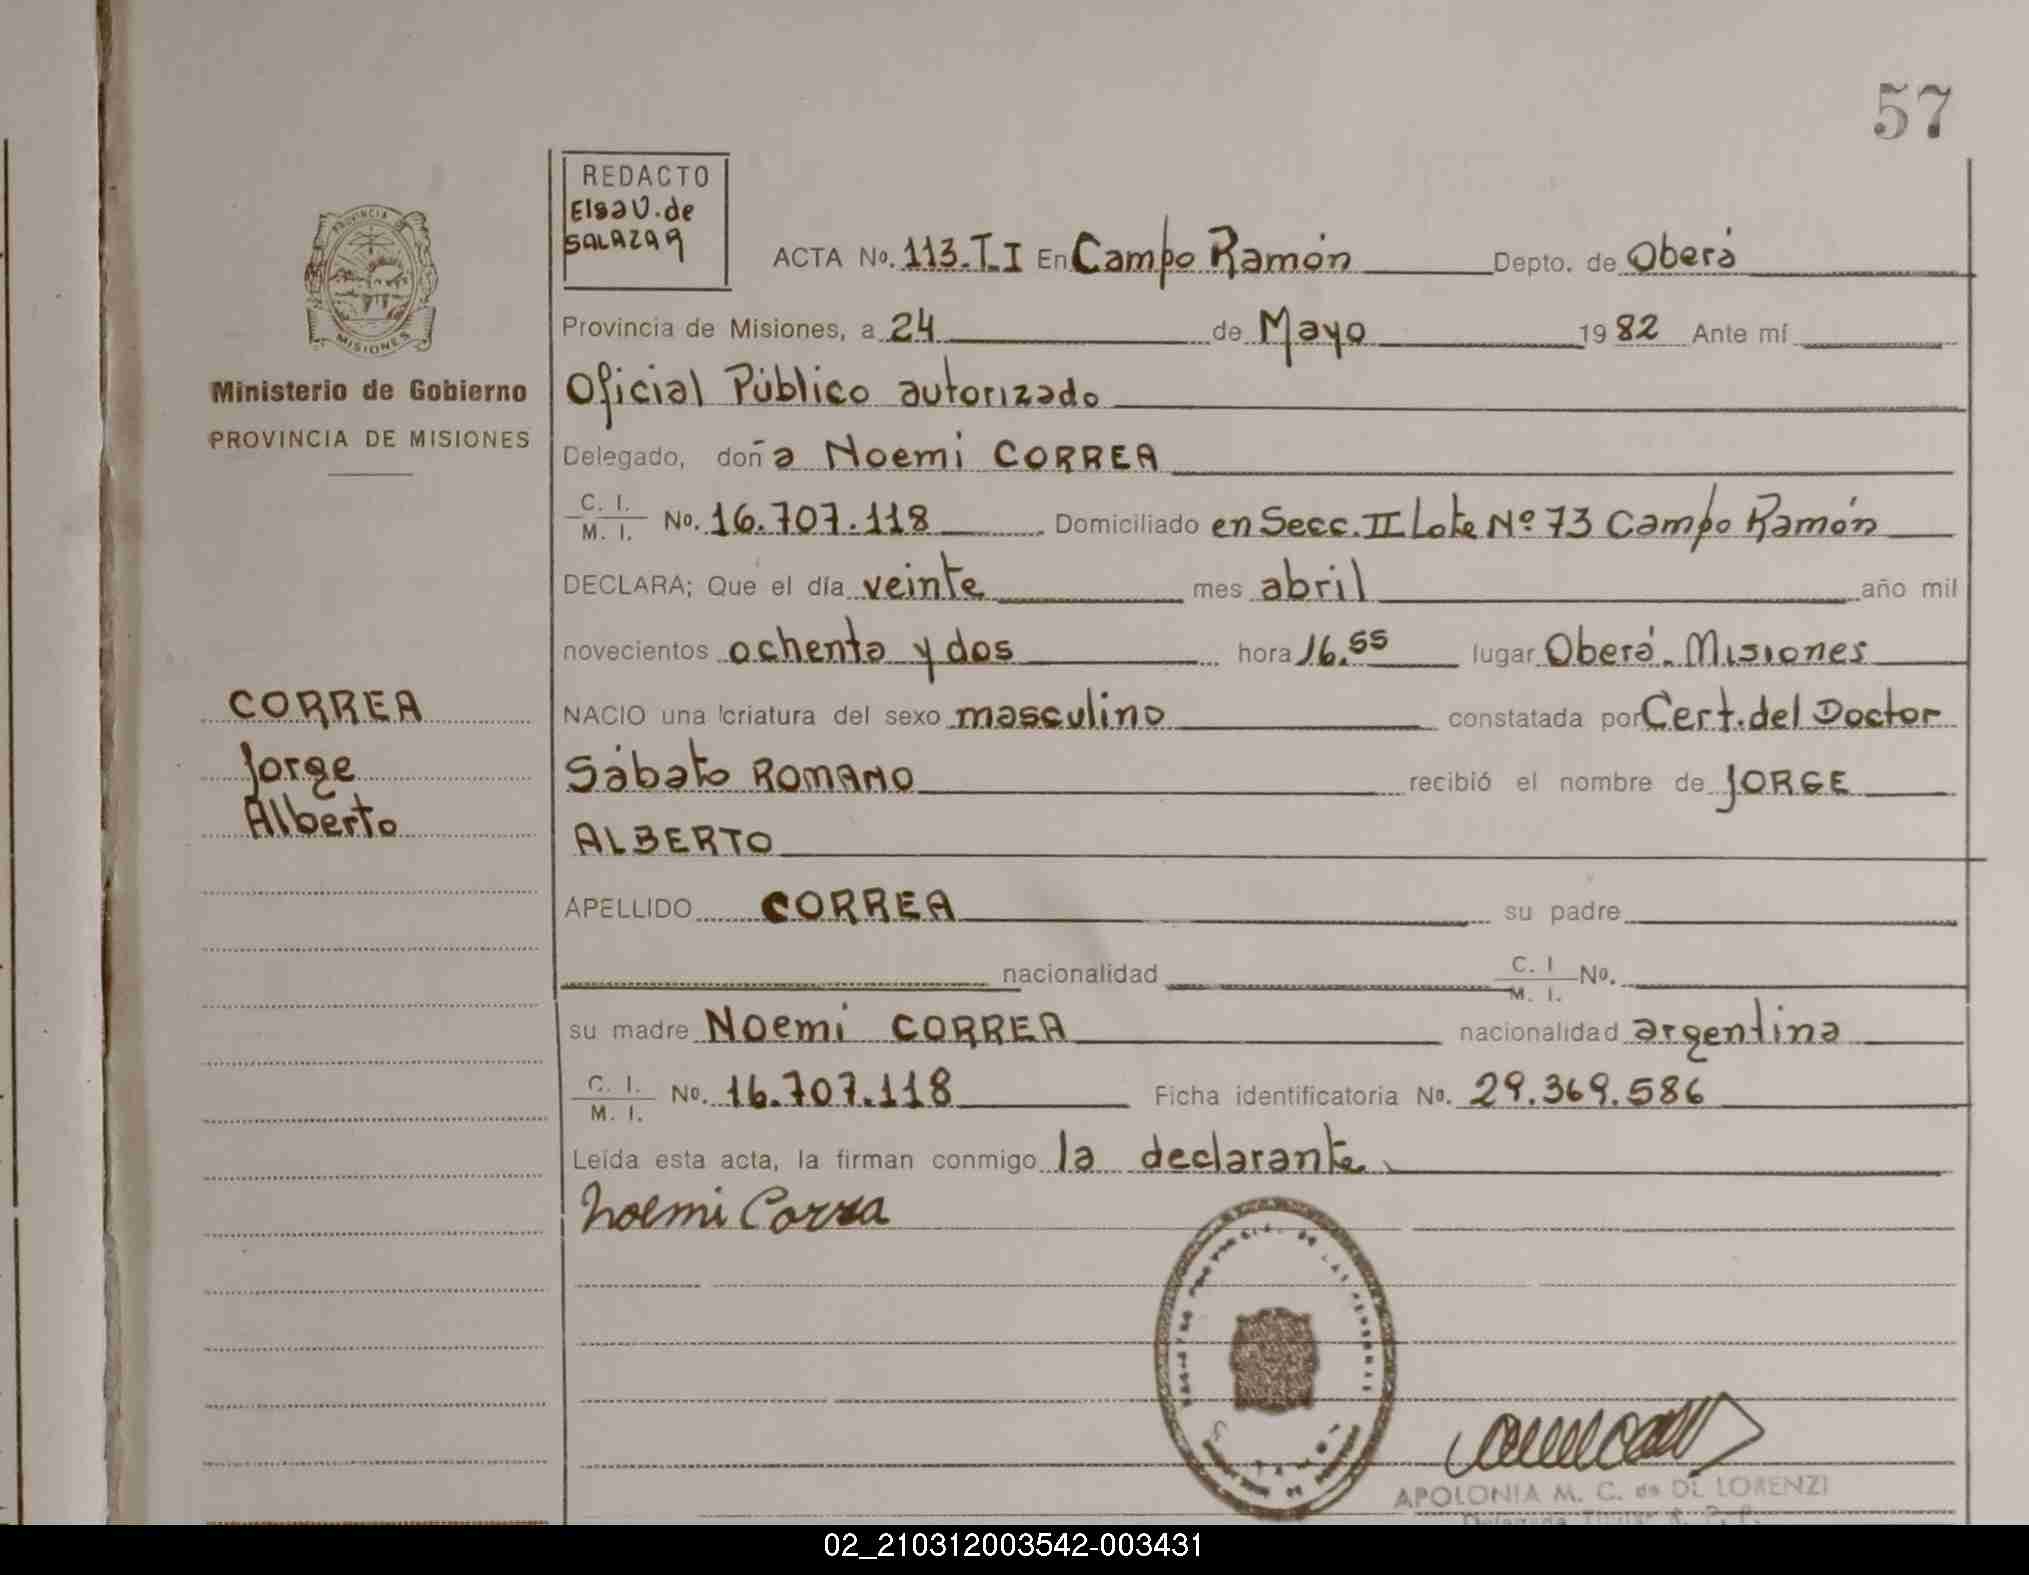 57
REDACTO
Elsa V. de
SALAZAR
ACTA No. 113.T.I En Campo Ramón Depto. de Oberá
PROVINCIA DE
MISIONES
Provincia de Misiones, a 24 de Mayo 1982 Ante mí
Ministerio de Gobierno
Oficial Público autorizado
PROVINCIA DE MISIONES
Delegado, doña Noemi CORREA
C. I.
M. I. No. 16.707.118 Domiciliado en Secc. II Lote Nº 73 Campo Ramón
DECLARA; Que el día veinte mes abril año mil
novecientos ochenta y dos hora 16.55 lugar Oberá. Misiones
CORREA
NACIO una criatura del sexo masculino constatada por Cert. del Doctor
Jorge
Sábato ROMANO recibió el nombre de JORGE
Alberto
ALBERTO
APELLIDO CORREA su padre
nacionalidad C. I No.
M. I.
su madre Noemi CORREA nacionalidad argentina
C. I.
M. I. No. 16.707.118 Ficha identificatoria No. 29.369.586
Leída esta acta, la firman conmigo la declarante
Noemi Correa
APOLONIA M. C. de DI LORENZI
02_210312003542-003431